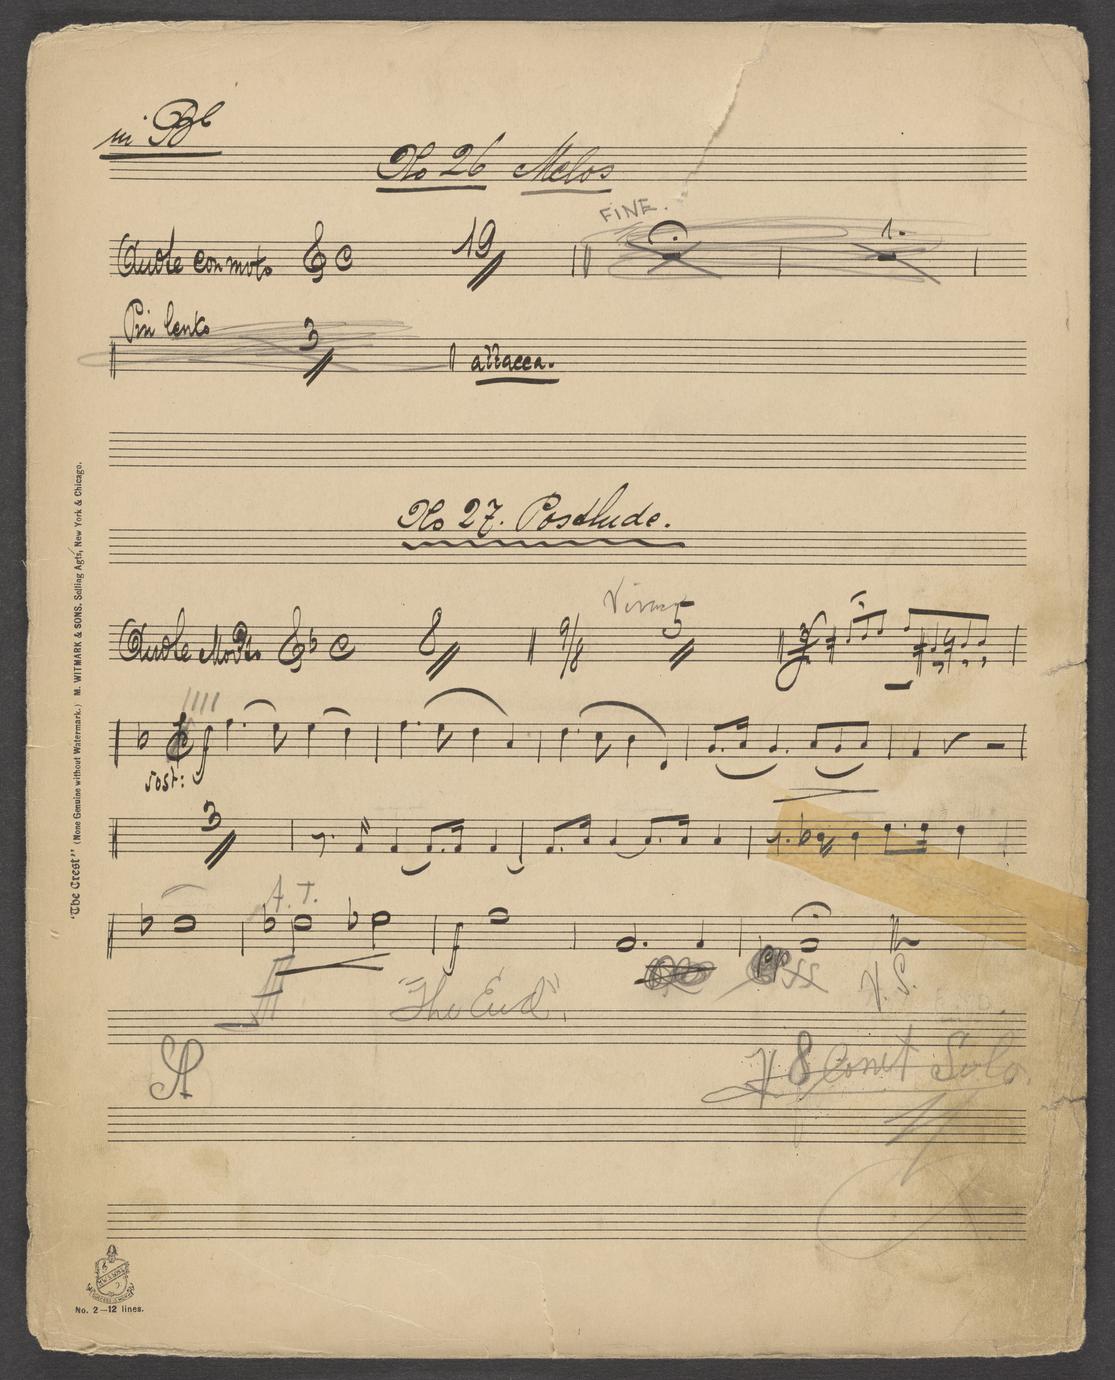 in Bb
No 26 Melos
FINE.
Andte con moto 19 1.
Più lento 3 attacca.
No 27. Postlude.
Vivace
Andte Modto 8 9/8 5
sost:
3
A. T.
"The End".
8 Cornet Solo.
"The Crest" (None Genuine without Watermark.) M. WITMARK & SONS. Selling Agts, New York & Chicago.
No. 2—12 lines.